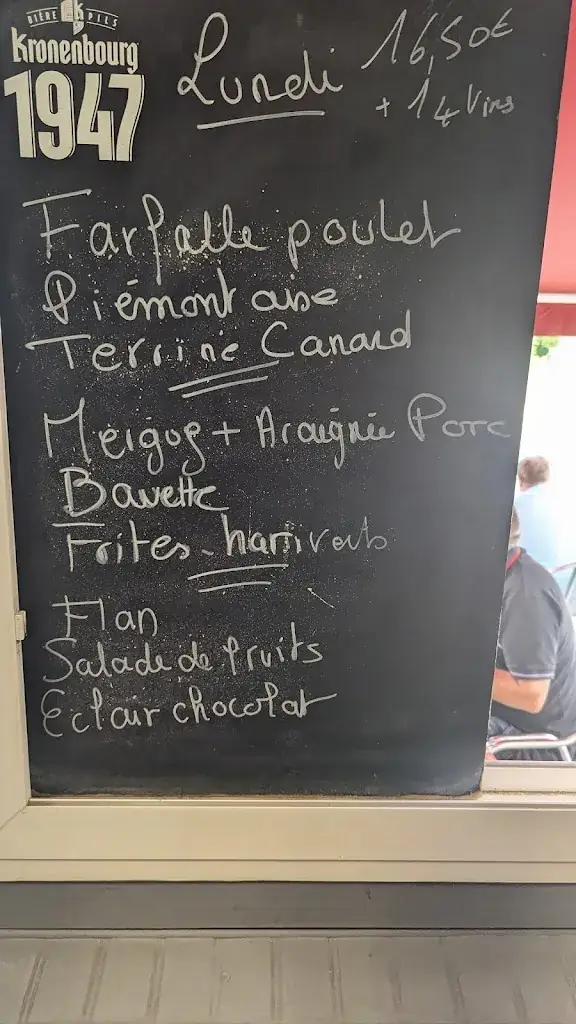 BIÈRE PILS
Kronenbourg
1947
Lundi
16,50€
+ 1/4 Vins
Farfalle poulet
Piémontaise
Terrine Canard
Mergug + Araignée Porc
Bavette
Frites - harriverts
Flan
Salade de fruits
Eclair chocolat